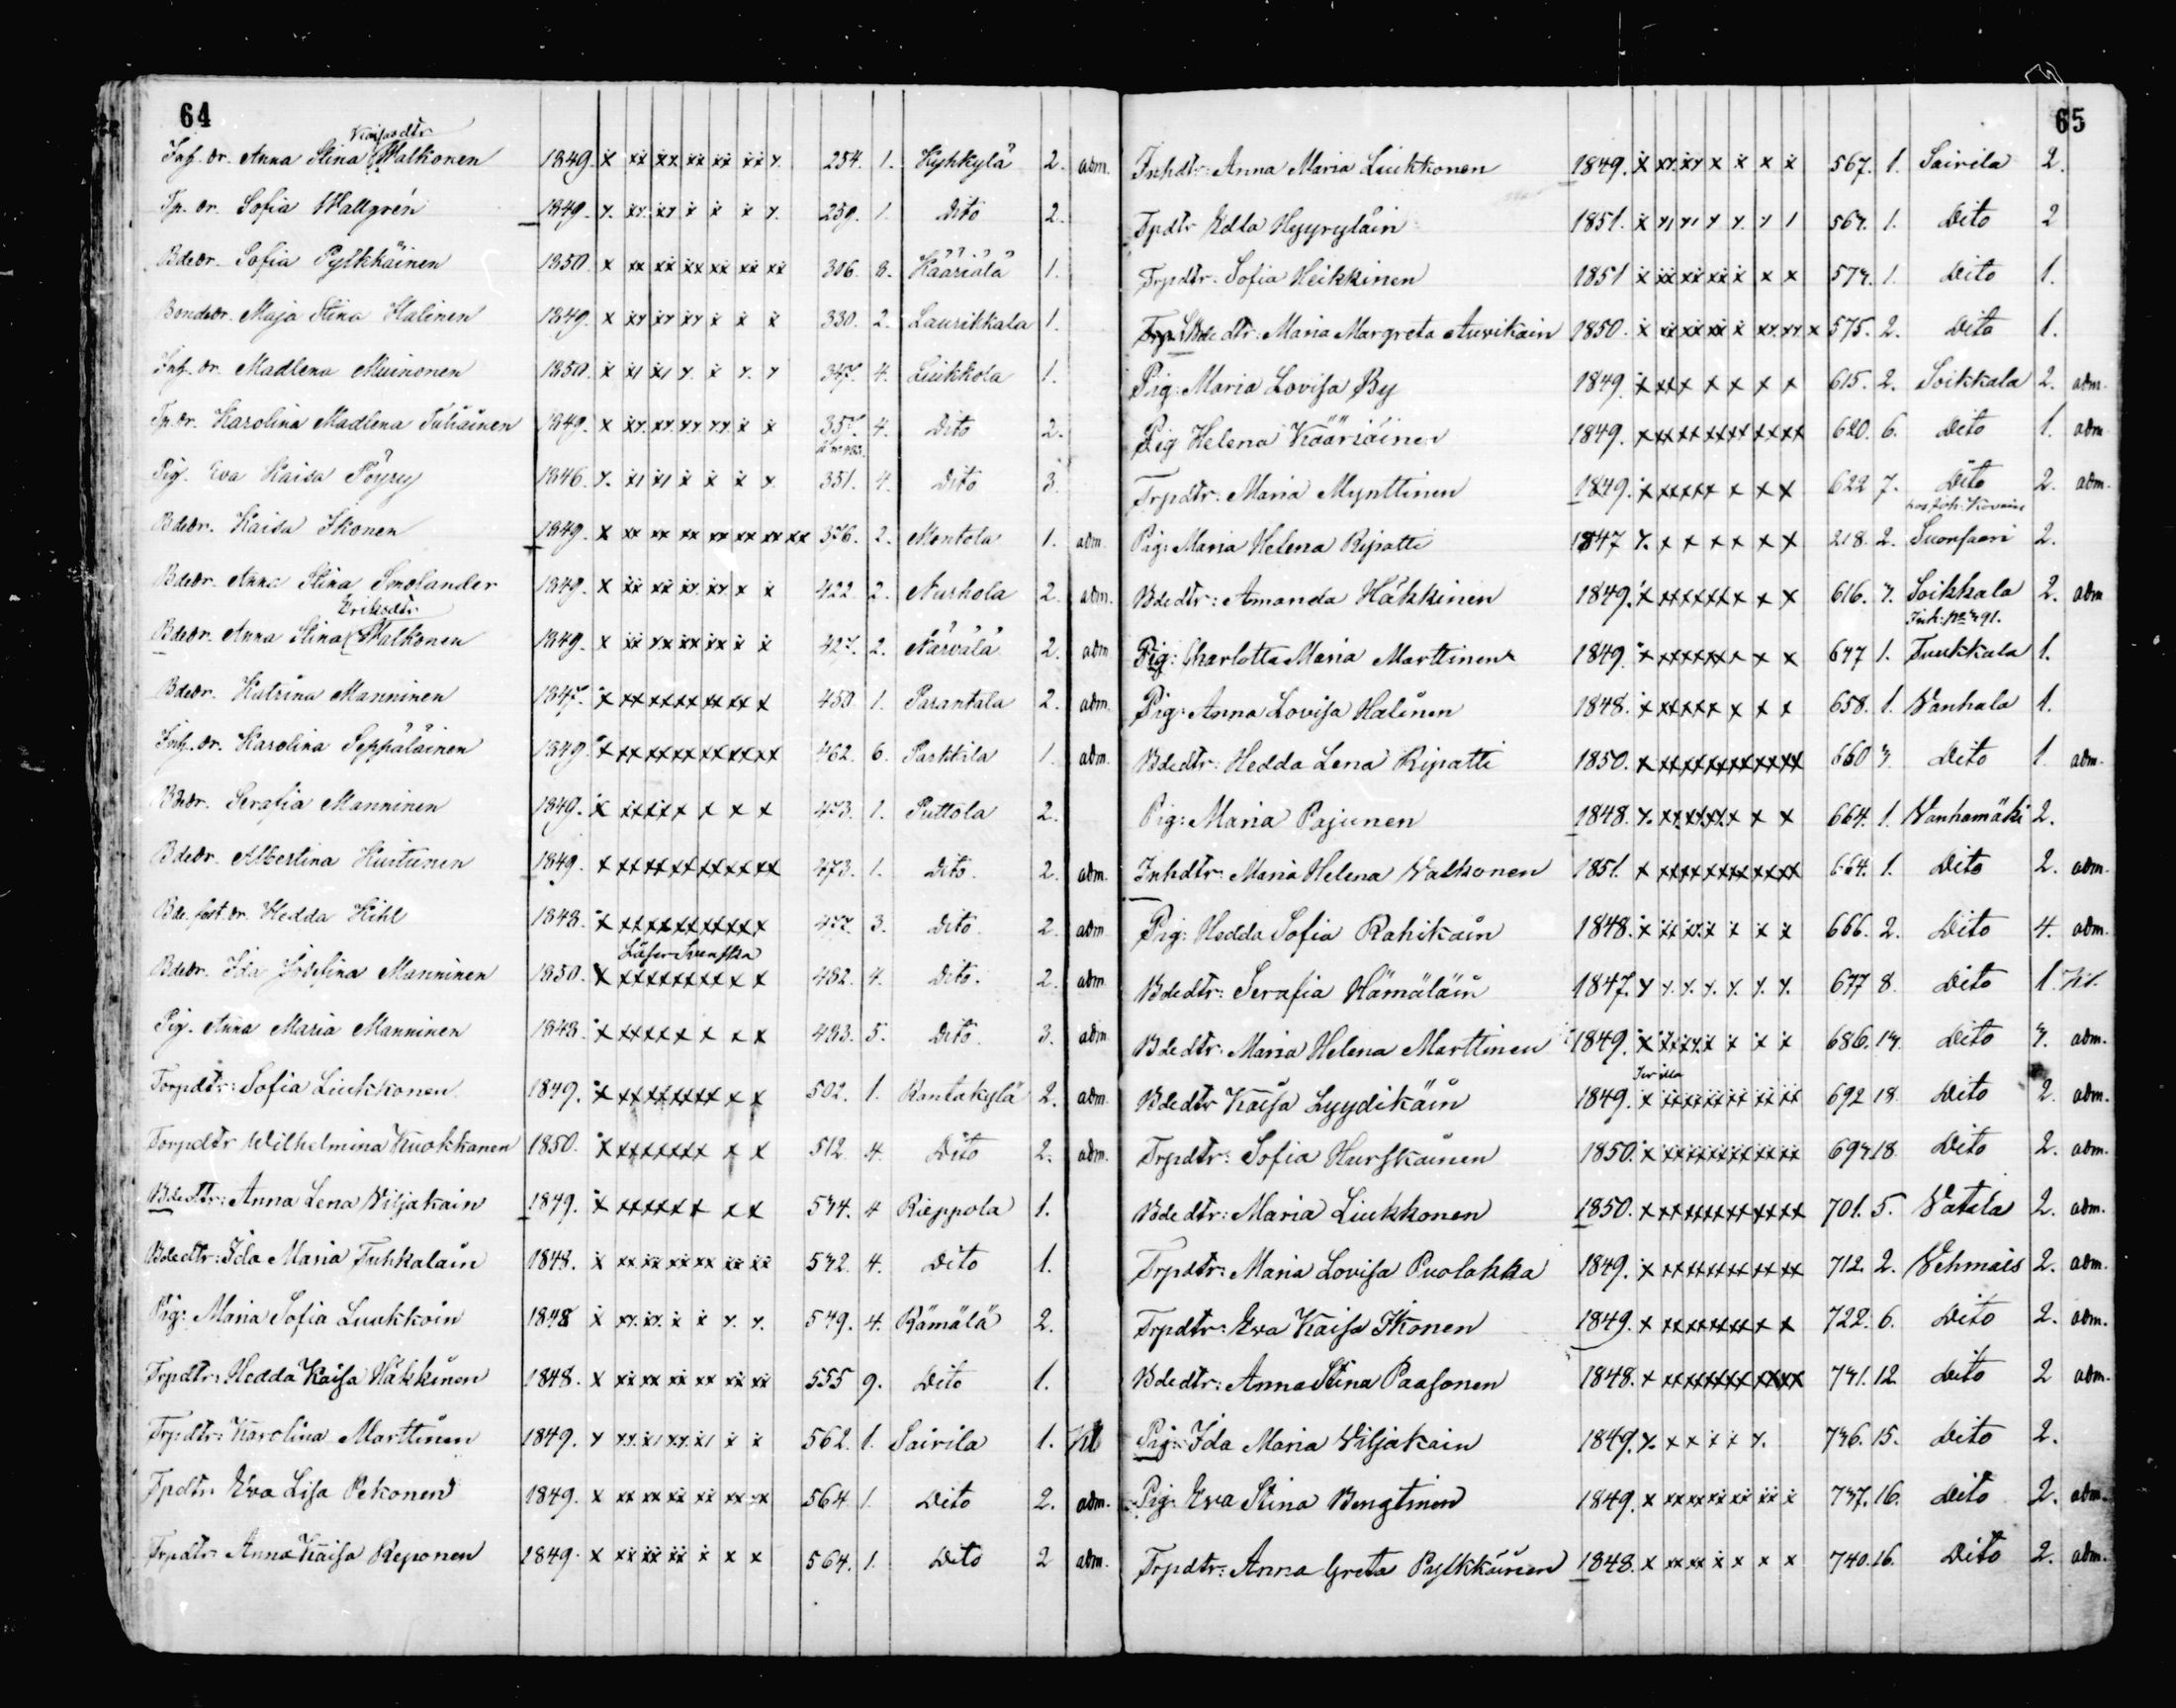 64
Kaisasdtr
Inh. dr. Anna Stina Walkonen 1849. x xx xx xx xx xx x. 254. 1. Kyhkylä 2. adm.
Tp. dr. Sofia Wallgrén 1849. x. xx. xx x x x x. 259. 1. Dito 2.
Bdedr. Sofia Pylkkäinen 1850 x xx xx xx xx xx xx 306. 8. Kääriälä 1.
Bondedr. Maja Stina Halinen 1849. x xx xx xx x x x 330. 2. Laurikkala 1.
Inh. dr. Madlena Muinonen 1850. x x x x. x x. x 347. 4. Liukkola 1.
Tp. dr. Karolina Madlena Tuhäinen 1849. x xx. xx. xx xx. x x 4. Dito 2.
Pig. Eva Kaisa Pöyry 1846. x. x x x x x x. 351. 4. Dito 3.
Bdedr. Kaisa Ikonen 1849. x xx xx xx xx xx xx xx 376. 2. Mentola 1. adm.
Bdedr. Anna Stina Smolander 1849. x xx xx xx xx x x 422. 2. Nurhola 2. adm.
Eriksdtr
Bdedr. Anna Stina Walkonen 1849. x xx xx xx xx x x 427. 2. Närvälä 2. adm
Bdedr. Katrina Manninen 1847. x xx xx xx xx xx x 459. 1. Parantala 2. adm.
Inh. dr. Karolina Seppäläinen 1849. x xx xx xx xx xx xx 462. 6. Parkkila 1. adm.
Bdedr. Serafia Manninen 1849. x xx xx x x x x 473. 1. Puttola 2.
Bdedr. Albertina Kuitunen 1849. x xx xx xx xx xx xx 473. 1. Dito. 2. adm.
Bde. fost. dr. Hedda Kihl 1848. x xx xx xx xx xx x 477. 3. Dito 2. adm
Läser Svenska
Bdedr. Ida Josefina Manninen 1850. x xx xx xx xx x x 482. 4. Dito. 2. adm.
Pig. Anna Maria Manninen 1848. x xx xx x x x x 483. 5. Dito. 3. adm
Torpdtr: Sofia Liukkonen 1849. x xx xx xx xx x x 502. 1. Rantakylä 2. adm.
Torpdtr Wilhelmina Kuokkanen 1850. x xx xx xx x x x 512 4. Dito 2. adm.
Bdedtr: Anna Lena Viljakain 1849. x xx xx xx x x 534. 4 Rieppola 1.
Bdedtr: Ida Maria Tuhkalain 1848. x xx xx xx xx xx xx 532. 4. Dito 1.
Pig: Maria Sofia Luukkoin 1848 x xx. xx. x x x. x. 549. 4. Rämälä 2.
Trpdtr: Hedda Kaisa Häkkinen 1848. x xx xx xx xx xx xx 555 9. Dito 1.
Trpdtr: Karolina Marttinen 1849. x xx. x xx. x x x 562. 1. Sairila 1.
Tpdtr: Eva Lisa Pekonen 1849. x xx xx xx xx xx xx 564. 1. Dito 2. adm.
Trpdtr: Anna Kaisa Reponen 1849. x xx xx xx x x x 564. 1. Dito 2 adm.
65
Inhdtr: Anna Maria Liukkonen 1849. x xx. xx x x x x 567. 1. Sairila 2.
Tpdtr Edla Hyyryläin 1851. x x x x x. x 567. 1. Dito 2
Trpdtr. Sofia Heikkinen 1851 x xx xx xx x x x 573. 1. Dito 1.
Bde dtr: Maria Margreta Auvikain 1850. x xx xx xx x xx. xx x 575. 2. Dito 1.
Pig: Maria Lovisa By 1849. x xx x x x x x 615. 2. Soikkala 2. adm.
Pig Helena Kääriäinen 1849. x xx xx xx xx xx 620. 6. Dito 1. adm
Trpdtr: Maria Mynttinen 1849. x xx xx x x x 622 7. Dito 2. adm.
Pig: Maria Helena Ripatti 1847 x. x x x x x x 218. 2. Suonsaari 2.
Bdedtr: Amanda Häkkinen 1849. x xx xx xx x x x 616. 7. Soikkala 2. adm
Pig: Charlotta Maria Marttinen 1849. x xx xx xx x x x 647 1. Tuukkala 1.
Pig: Anna Lovisa Halinen 1848. x xx xx x x x x 658. 1. Vanhala 1.
Bdedtr: Hedda Lena Ripatti 1850. x xx xx xx xx xx xx 660 3. Dito 1 adm.
Pig: Maria Pajunen 1848. x. xx. xx. xx. x x x 664. 1. Vanhamäki 2.
Inhdtr: Maria Helena Valkonen 1851. x xx xx xx xx xx xx 664. 1. Dito 2. adm.
Pig: Hedda Sofia Rahikain 1848. x xx xx. x x x x 666. 2. Dito 4. adm.
Bdedtr: Serafia Hämäläin 1847. x x. x. x. x. x. x. 677 8. Dito 1
Bdedtr: Maria Helena Marttinen 1849. x xx xx. x x x x 686. 14. Dito adm.
Bdedtr Kaisa Lyydikäin 1849. x xx xx xx xx xx xx 692 18. Dito 2. adm.
Trpdtr: Sofia Hurskainen 1850. x xx xx xx xx xx xx 694 18. Dito 2. adm.
Bdedtr: Maria Liukkonen 1850. x xx xx xx xx xx xx 701. 5. Vatila 2. adm.
Trpdtr: Maria Lovisa Puolakka 1849. x xx xx xx xx xx xx 712. 2. Vehmais 2. adm.
Trpdtr: Eva Kaisa Ikonen 1849. x xx xx xx xx x x 722. 6. Dito 2. adm.
Bdedtr: Anna Stina Paasonen 1848. x xx xx xx xx xx xx 731. 12 Dito 2 adm.
Pig: Ida Maria Viljakain 1849. x. x x x x x. 736. 15. Dito 2.
Pig: Eva Stina Bengtinen 1849. x xx xx xx xx xx x 737. 16. Dito 2. adm.
Trpdtr: Anna Greta Pylkkäinen 1848. x xx xx x x x x 740. 16. Dito 2. adm.